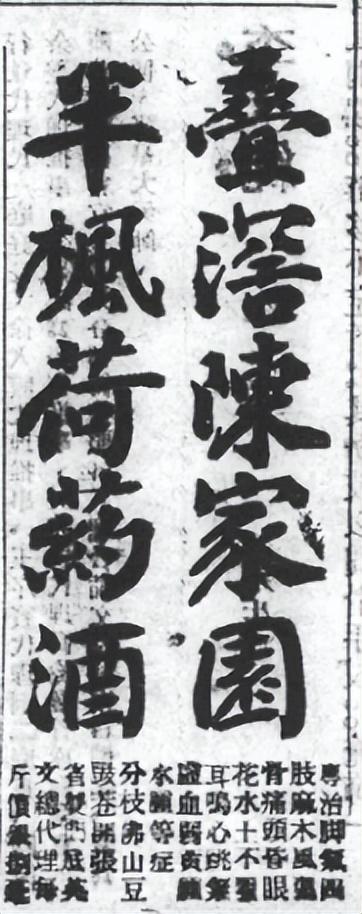 疊滘陳家園
半楓荷葯酒
專治脚氣四
肢麻木風濕
骨痛頭昏眼
花水土不服
耳鳴心跳
血弱黃
水腫等症
分枝佛山豆
豉巷開張
省雙門底英
文總代理每
斤價銀捌毫